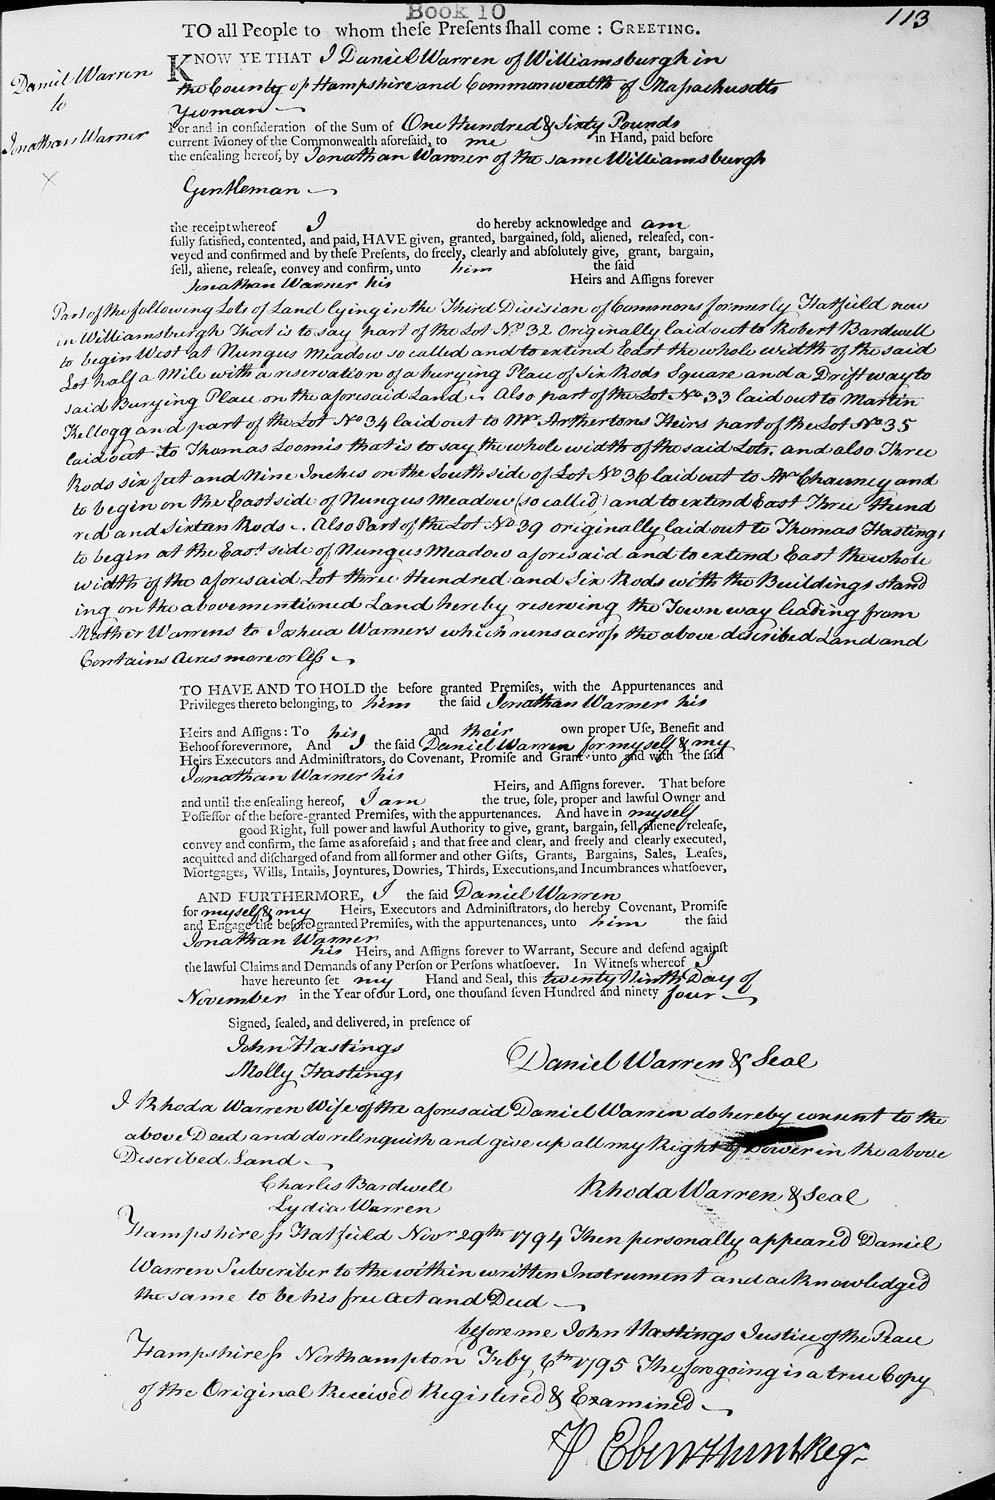 Book 10
113
TO all People to whom these Presents shall come : GREETING.
Daniel Warren
to
Jonathan Warner
KNOW YE THAT I Daniel Warren of Williamsburgh in
the County of Hampshire and Commonwealth of Massachusetts
Yeoman
For and in consideration of the Sum of One Hundred & Sixty Pounds
current Money of the Commonwealth aforesaid, to me in Hand, paid before
the ensealing hereof, by Jonathan Warner of the same Williamsburgh
Gentleman
the receipt whereof I do hereby acknowledge and am
fully satisfied, contented, and paid, HAVE given, granted, bargained, sold, aliened, released, con-
veyed and confirmed and by these Presents, do freely, clearly and absolutely give, grant, bargain,
sell, aliene, release, convey and confirm, unto him the said
Jonathan Warner his Heirs and Assigns forever
Part of the following Lots of Land lying in the Third Division of Commons formerly Hatfield now
in Williamsburgh That is to say part of the Lot No 32 Originally laid out to Robert Bardwell
to begin West at Nungus Meadow so called and to extend East the whole width of the said
Lot half a Mile with a reservation of a burying Place of Six Rods Square and a Drift way to
said Burying Place on the aforesaid Land. Also part of the Lot No 33 laid out to Martin
Kellogg and part of the Lot No 34 laid out to Mr. Arthertons Heirs part of the Lot No 35
laid out to Thomas Loomis that is to say the whole width of the said Lots. and also Three
Rods six feet and Nine Inches on the South side of Lot No 36 laid out to Mr Chauncy and
to begin on the East side of Nungus Meadow (so called) and to extend East Three Hund
red and Sixteen Rods. Also Part of the Lot No 39 originally laid out to Thomas Hastings
to begin at the East side of Nungus Meadow aforesaid and to extend East the whole
width of the aforesaid Lot three Hundred and Six Rods with the Buildings stand
ing on the abovementioned Land hereby reserving the Town way leading from
Mather Warrens to Joshua Warners which runs across the above discribed Land and
Contains Acres more or less
TO HAVE AND TO HOLD the before granted Premises, with the Appurtenances and
Privileges thereto belonging, to him the said Jonathan Warner his
Heirs and Assigns : To his and their own proper Use, Benefit and
Behoof forevermore, And I the said Daniel Warren for myself & my
Heirs Executors and Administrators, do Covenant, Promise and Grant unto and with the said
Jonathan Warner his Heirs, and Assigns forever. That before
and until the ensealing hereof, I am the true, sole, proper and lawful Owner and
Possessor of the before-granted Premises, with the appurtenances. And have in myself
good Right, full power and lawful Authority to give, grant, bargain, sell, aliene, release,
convey and confirm, the same as aforesaid ; and that free and clear, and freely and clearly executed,
acquitted and discharged of and from all former and other Gifts, Grants, Bargains, Sales, Leases,
Mortgages, Wills, Intails, Joyntures, Dowries, Thirds, Executions, and Incumbrances whatsoever,
AND FURTHERMORE, I the said Daniel Warren
for myself & my Heirs, Executors and Administrators, do hereby Covenant, Promise
and Engage the before granted Premises, with the appurtenances, unto him the said
Jonathan Warner
his Heirs, and Assigns forever to Warrant, Secure and defend against
the lawful Claims and Demands of any Person or Persons whatsoever. In Witness whereof I
have hereunto set my Hand and Seal, this twenty Ninth Day of
November in the Year of our Lord, one thousand seven Hundred and ninety four
Signed, sealed, and delivered, in presence of
John Hastings
Molly Hastings
Daniel Warren & Seal
I Rhoda Warren Wife of the aforesaid Daniel Warren do hereby consent to the
above Deed and do relinquish and give up all my Right of Dower in the above
Discribed Land
Charles Bardwell
Lydia Warren
Rhoda Warren & Seal
Hampshire ss Hatfield Novr 29th 1794 Then personally appeared Daniel
Warren Subscriber to the within written Instrument and acknowledged
the same to be his free Act and Deed
before me John Hastings Justice of the Peace
Hampshire ss Northampton Feby 6th 1795 The foregoing is a true Copy
of the Original Received Registered & Examined
Eben Hunt Regr